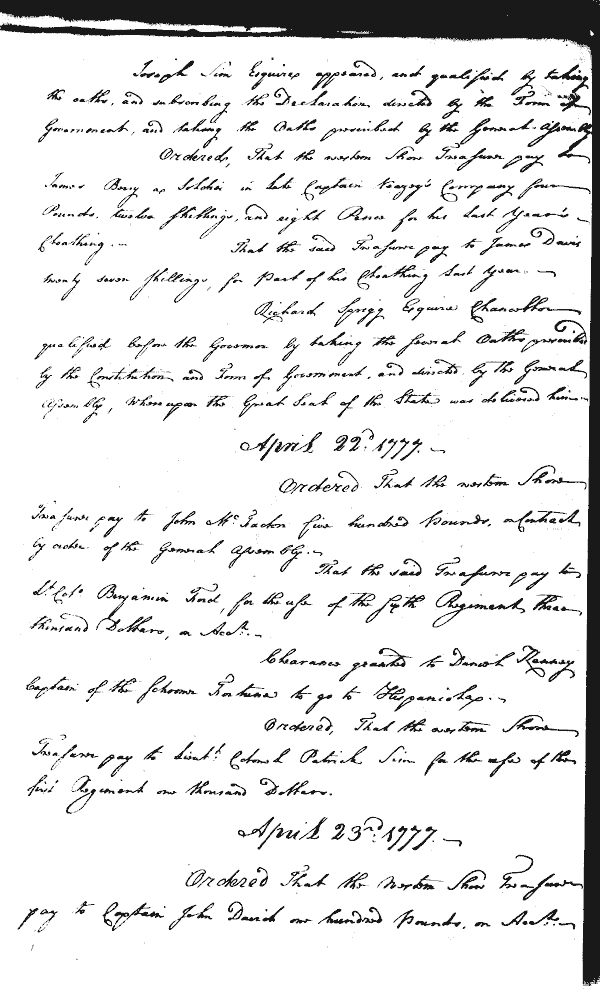 Joseph Sim Esquire appeared, and qualified by taking
the oaths, and subscribing the Declaration directed by the Form of
Government, and taking the Oaths prescribed by the General Assembly
Ordered, That the western Shore Treasurer pay to
James Berry a Soldier in late Captain Veazey's Company four
Pounds, twelve shillings, and eight Pence for his last Year's
Cloathing. — That the said Treasurer pay to James Davis
twenty seven shillings, for Part of his Cloathing last year. —
Richard Sprigg Esquire Chancellor
qualified before the Governor by taking the several Oaths prescribed
by the Constitution and Form of Government, and directed by the General
Assembly, Whereupon the Great Seal of the State was delivered him —
April 22d. 1777. —
Ordered That the western Shore
Treasurer pay to John McFadon five hundred Pounds, on Contract
by order of the General Assembly. —
That the said Treasurer pay to
Lt. Colo. Benjamin Ford, for the use of the sixth Regiment three
thousand Dollars, on Acct. —
Clearance granted to Daniel
Captain of the Schooner Fortune to go to Hispaniola. —
Ordered, That the western Shore
Treasurer pay to Lieut. Colonel Patrick Sim for the use of the
first Regiment one thousand Dollars.
April 23rd. 1777. —
Ordered That the Western Shore Treasurer
pay to Captain John David one hundred Pounds, on Acct. —